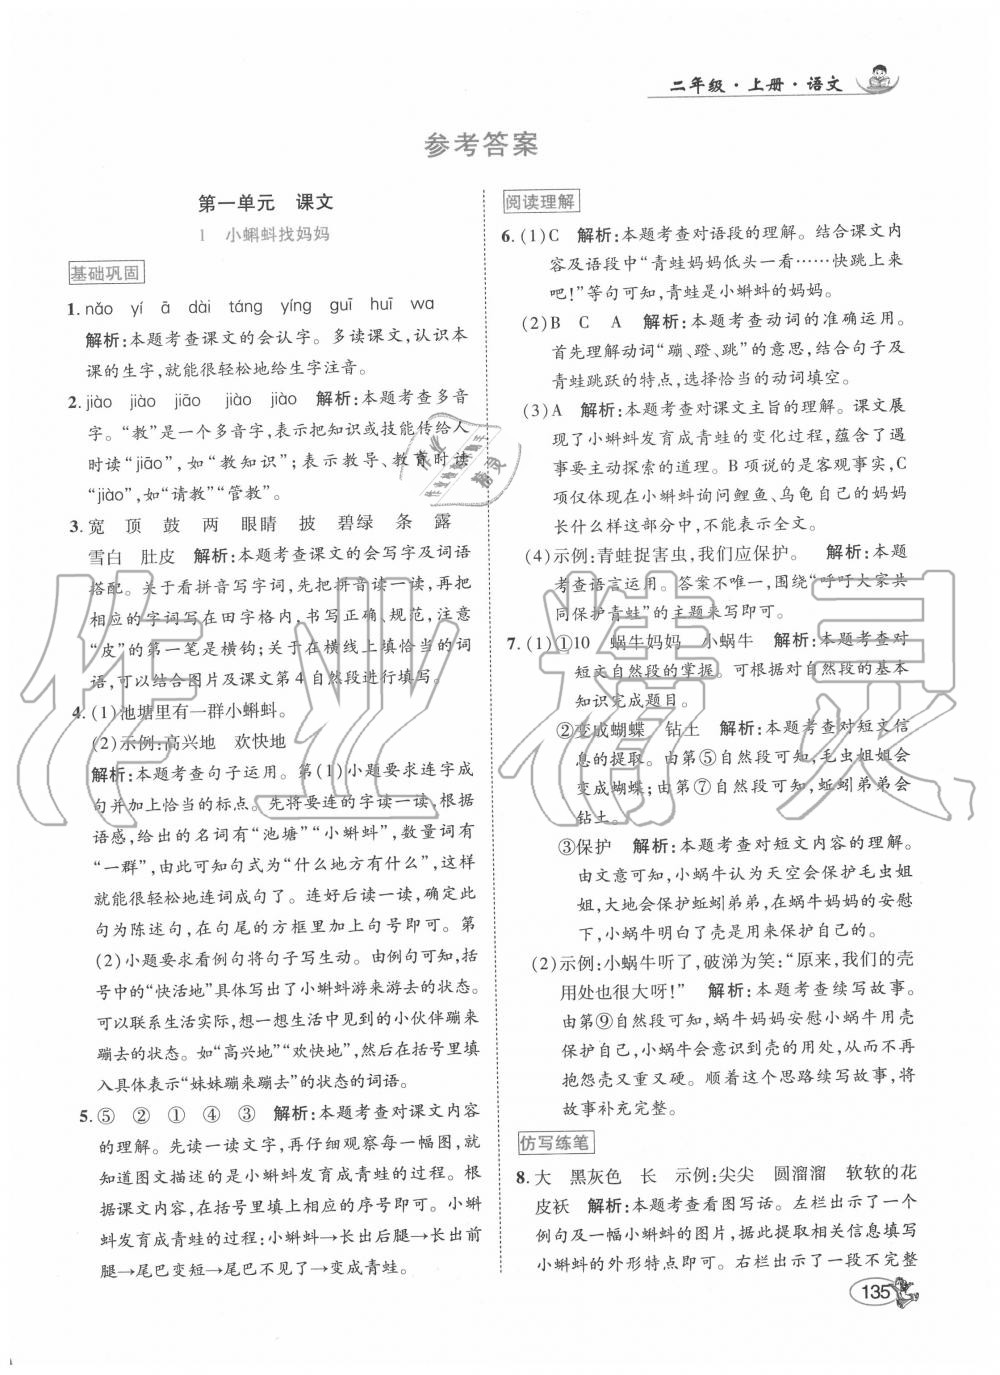 二年级·上册·语文
参考答案
第一单元 课文
1 小蝌蚪找妈妈
基础巩固
1. nǎo yí ā dài táng yíng guī huī wa
解析:本题考查课文的会认字。多读课文,认识本
课的生字,就能很轻松地给生字注音。
2. jiào jiào jiāo jiào jiào 解析:本题考查多音
字。“教”是一个多音字,表示把知识或技能传给人
时读“jiāo”,如“教知识”;表示教导、教育时读
“jiào”,如“请教”“管教”。
3. 宽 顶 鼓 两 眼睛 披 碧绿 条 露
雪白 肚皮 解析:本题考查课文的会写字及词语
搭配。关于看拼音写字词,先把拼音读一读,再把
相应的字词写在田字格内,书写正确、规范,注意
“皮”的第一笔是横钩;关于在横线上填恰当的词
语,可以结合图片及课文第4自然段进行填写。
4. (1)池塘里有一群小蝌蚪。
(2)示例:高兴地 欢快地
解析:本题考查句子运用。第(1)小题要求连字成
句并加上恰当的标点。先将要连的字读一读,根据
语感,给出的名词有“池塘”“小蝌蚪”,数量词有
“一群”,由此可知句式为“什么地方有什么”,这样
就能很轻松地连词成句了。连好后读一读,确定此
句为陈述句,在句尾的方框里加上句号即可。第
(2)小题要求看例句将句子写生动。由例句可知,括
号中的“快活地”具体写出了小蝌蚪游来游去的状态。
可以联系生活实际,想一想生活中见到的小伙伴蹦来
蹦去的状态。如“高兴地”“欢快地”,然后在括号里填
入具体表示“妹妹蹦来蹦去”的状态的词语。
5. ⑤ ② ① ④ ③ 解析:本题考查对课文内容
的理解。先读一读文字,再仔细观察每一幅图,就
知道图文描写的是小蝌蚪发育成青蛙的过程。根
据课文内容,在括号里填上相应的序号即可。小蝌
蚪发育成青蛙的过程:小蝌蚪→长出后腿→长出前
腿→尾巴变短→尾巴不见了→变成青蛙。
阅读理解
6. (1)C 解析:本题考查对语段的理解。结合课文内
容及语段中“青蛙妈妈低头一看……快跳上来
吧!”等句可知,青蛙是小蝌蚪的妈妈。
(2)B C A 解析:本题考查动词的准确运用。
首先理解动词“蹦、蹬、跳”的意思,结合句子及
青蛙跳跃的特点,选择恰当的动词填空。
(3)A 解析:本题考查对课文主旨的理解。课文展
现了小蝌蚪发育成青蛙的变化过程,蕴含了遇
事要主动探索的道理。B项说的是客观事实,C
项仅体现在小蝌蚪询问鲤鱼、乌龟自己的妈妈
长什么样这部分中,不能表示全文。
(4)示例:青蛙捉害虫,我们应保护。 解析:本题
考查语言运用。答案不唯一,围绕“呼吁大家共
同保护青蛙”的主题来写即可。
7. (1)①10 蜗牛妈妈 小蜗牛 解析:本题考查对
短文自然段的掌握。可根据对自然段的基本
知识完成题目。
②变成蝴蝶 钻土 解析:本题考查对短文信
息的提取。由第⑤自然段可知,毛虫姐姐会
变成蝴蝶;由第⑦自然段可知,蚯蚓弟弟会
钻土。
③保护 解析:本题考查对短文内容的理解。
由文意可知,小蜗牛认为天空会保护毛虫姐
姐,大地会保护蚯蚓弟弟,在蜗牛妈妈的安慰
下,小蜗牛明白了壳是用来保护自己的。
(2)示例:小蜗牛听了,破涕为笑:“原来,我们的壳
用处也很大呀!” 解析:本题考查续写故事。
由第⑨自然段可知,蜗牛妈妈安慰小蜗牛用壳
保护自己,小蜗牛会意识到壳的用处,从而不再
抱怨壳又重又硬。顺着这个思路续写故事,将
故事补充完整。
仿写练笔
8. 大 黑灰色 长 示例:尖尖 圆溜溜 软软的花
皮袄 解析:本题考查看图写话。左栏出示了一个
例句及一幅小蝌蚪的图片,据此提取相关信息填写
小蝌蚪的外形特点即可。右栏出示了一段不完整
135
作业精灵